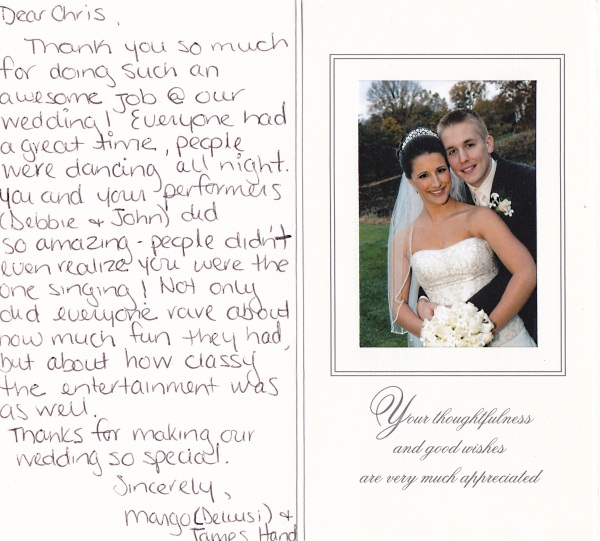 Dear Chris,
Thank you so much
for doing such an
awesome job @ our
wedding! Everyone had
a great time, people
were dancing all night.
You and your performers
(Debbie & John) did
so amazing - people didn't
even realize you were the
one singing! Not only
did everyone rave about
how much fun they had,
but about how classy
the entertainment was
as well.
Thanks for making our
wedding so special.
Sincerely,
Margo &
James Hand
Your thoughtfulness
and good wishes
are very much appreciated